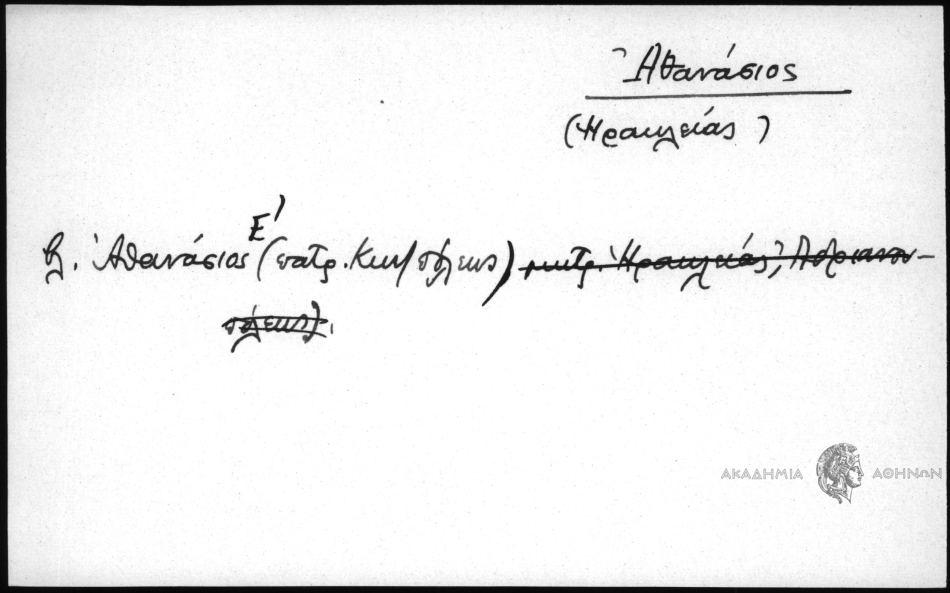 Ἀθανάσιος
(Ἡρακλείας)
βλ. Ἀθανάσιος Ε' (πατρ. Κων/πόλεως) μητρ. Ἡρακλείας, Ἀδριανου-
πόλεως).
ΑΚΑΔΗΜΙΑ ΑΘΗΝΩΝ